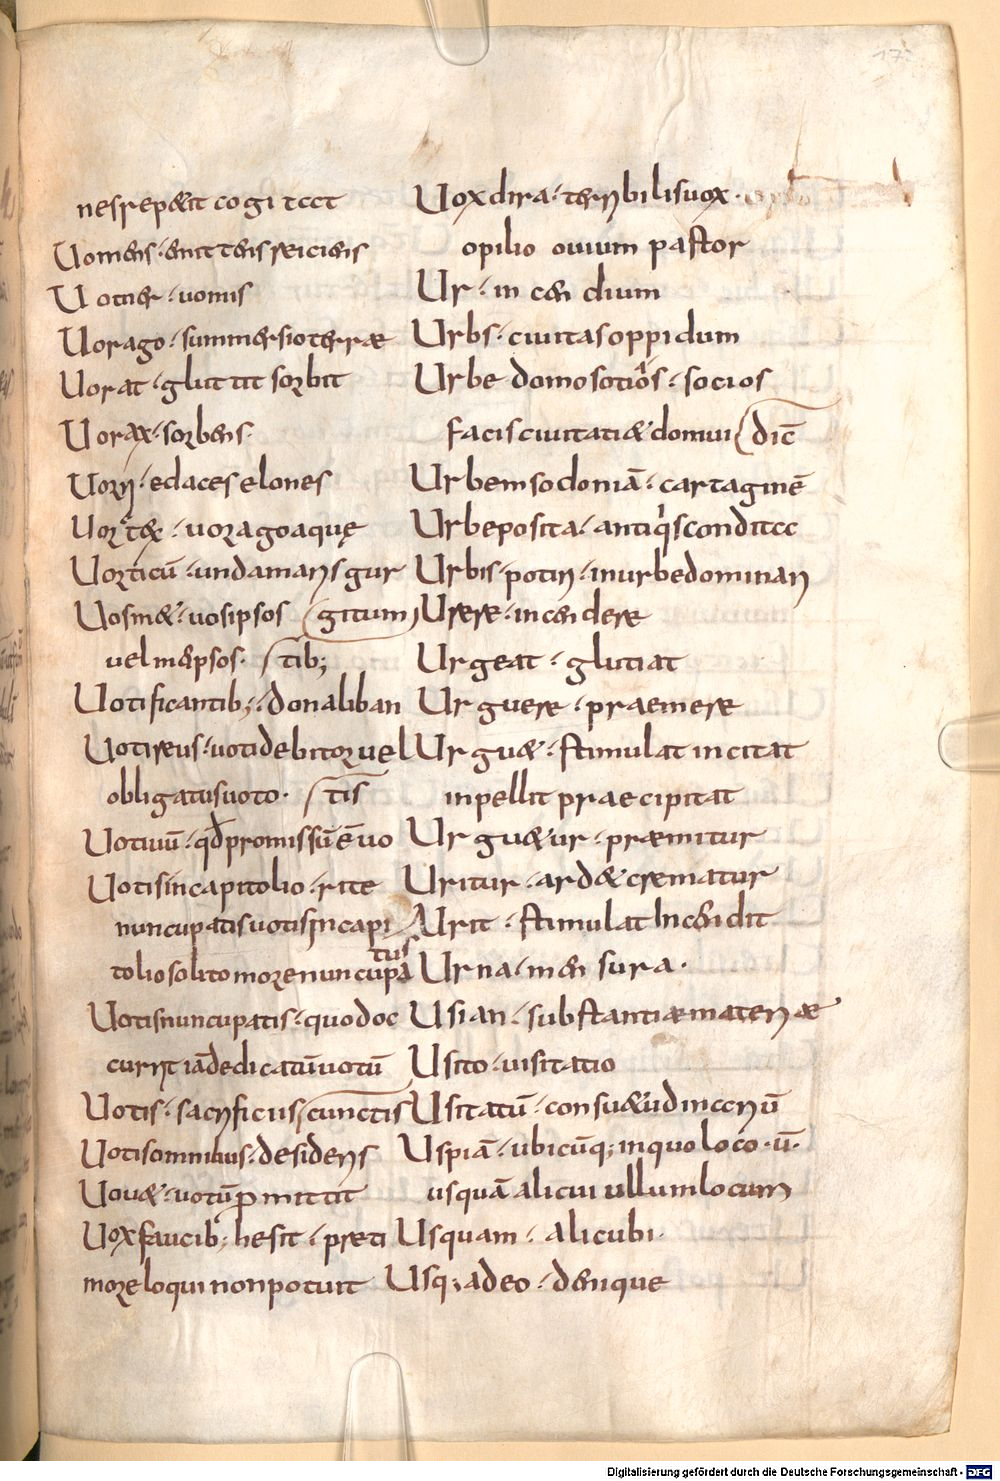 nesrep&it cogitat
Uomens · emittens reiciens
Uotier · uomis
Uorago · summersio terrae
Uorat · gluttit sorbit
Uorax · sorbens ·
Uori · edaces elones
Uortex · uorago aquę
Uorticū · undamaris gur
Uosm& · uosipsos gitum
uel metipsos · tib;
Uotificantib; · donaliban
Uotireus · uoti debitor uel
obligatus uoto · tis
Uotiuū · qđ promissū ē uo
Uotis in capitolio · rite
nuncupatis uotis in capi
tus
tolio solito more nuncupa
Uotis nuncupatis · quod oc
currit iā dedicatū uotū
Uotis · sacrificiis cunctis
Uotis omnibus · desideriis
Uou& · uotū ꝓmittit
Uox faucib; hesit · preti
more loqui non potuit
Uox dira · terribilis uox ·
opilio ouium pastor
Ur · incendium
Urbs · ciuitas oppidum
Urbe domo sotios · socios
facis ciuitati & domui dic̄
Urbem sodoniā · cartaginē
Urbe posita · antiqis condita
Urbis potiri · in urbe dominari
Urere · incendere
Urgeat · glutiat
Urguere · praemere
Urgu& · stimulat incitat
inpellit praecipitat
Urgu&ur · præmitur
Uritur · ard& crematur
Urit · stimulat Incendit
Urna · mensura ·
Usian · substantiæ materiæ
Usito · uisitatio
Usitatū · consu&ud incertū
Uspiā · ubicūq; in quo loco · ū ·
usquā alicui ullum locum
Usquam · alicubi ·
Usq; adeo · denique
Digitalisierung gefördert durch die Deutsche Forschungsgemeinschaft - DFG